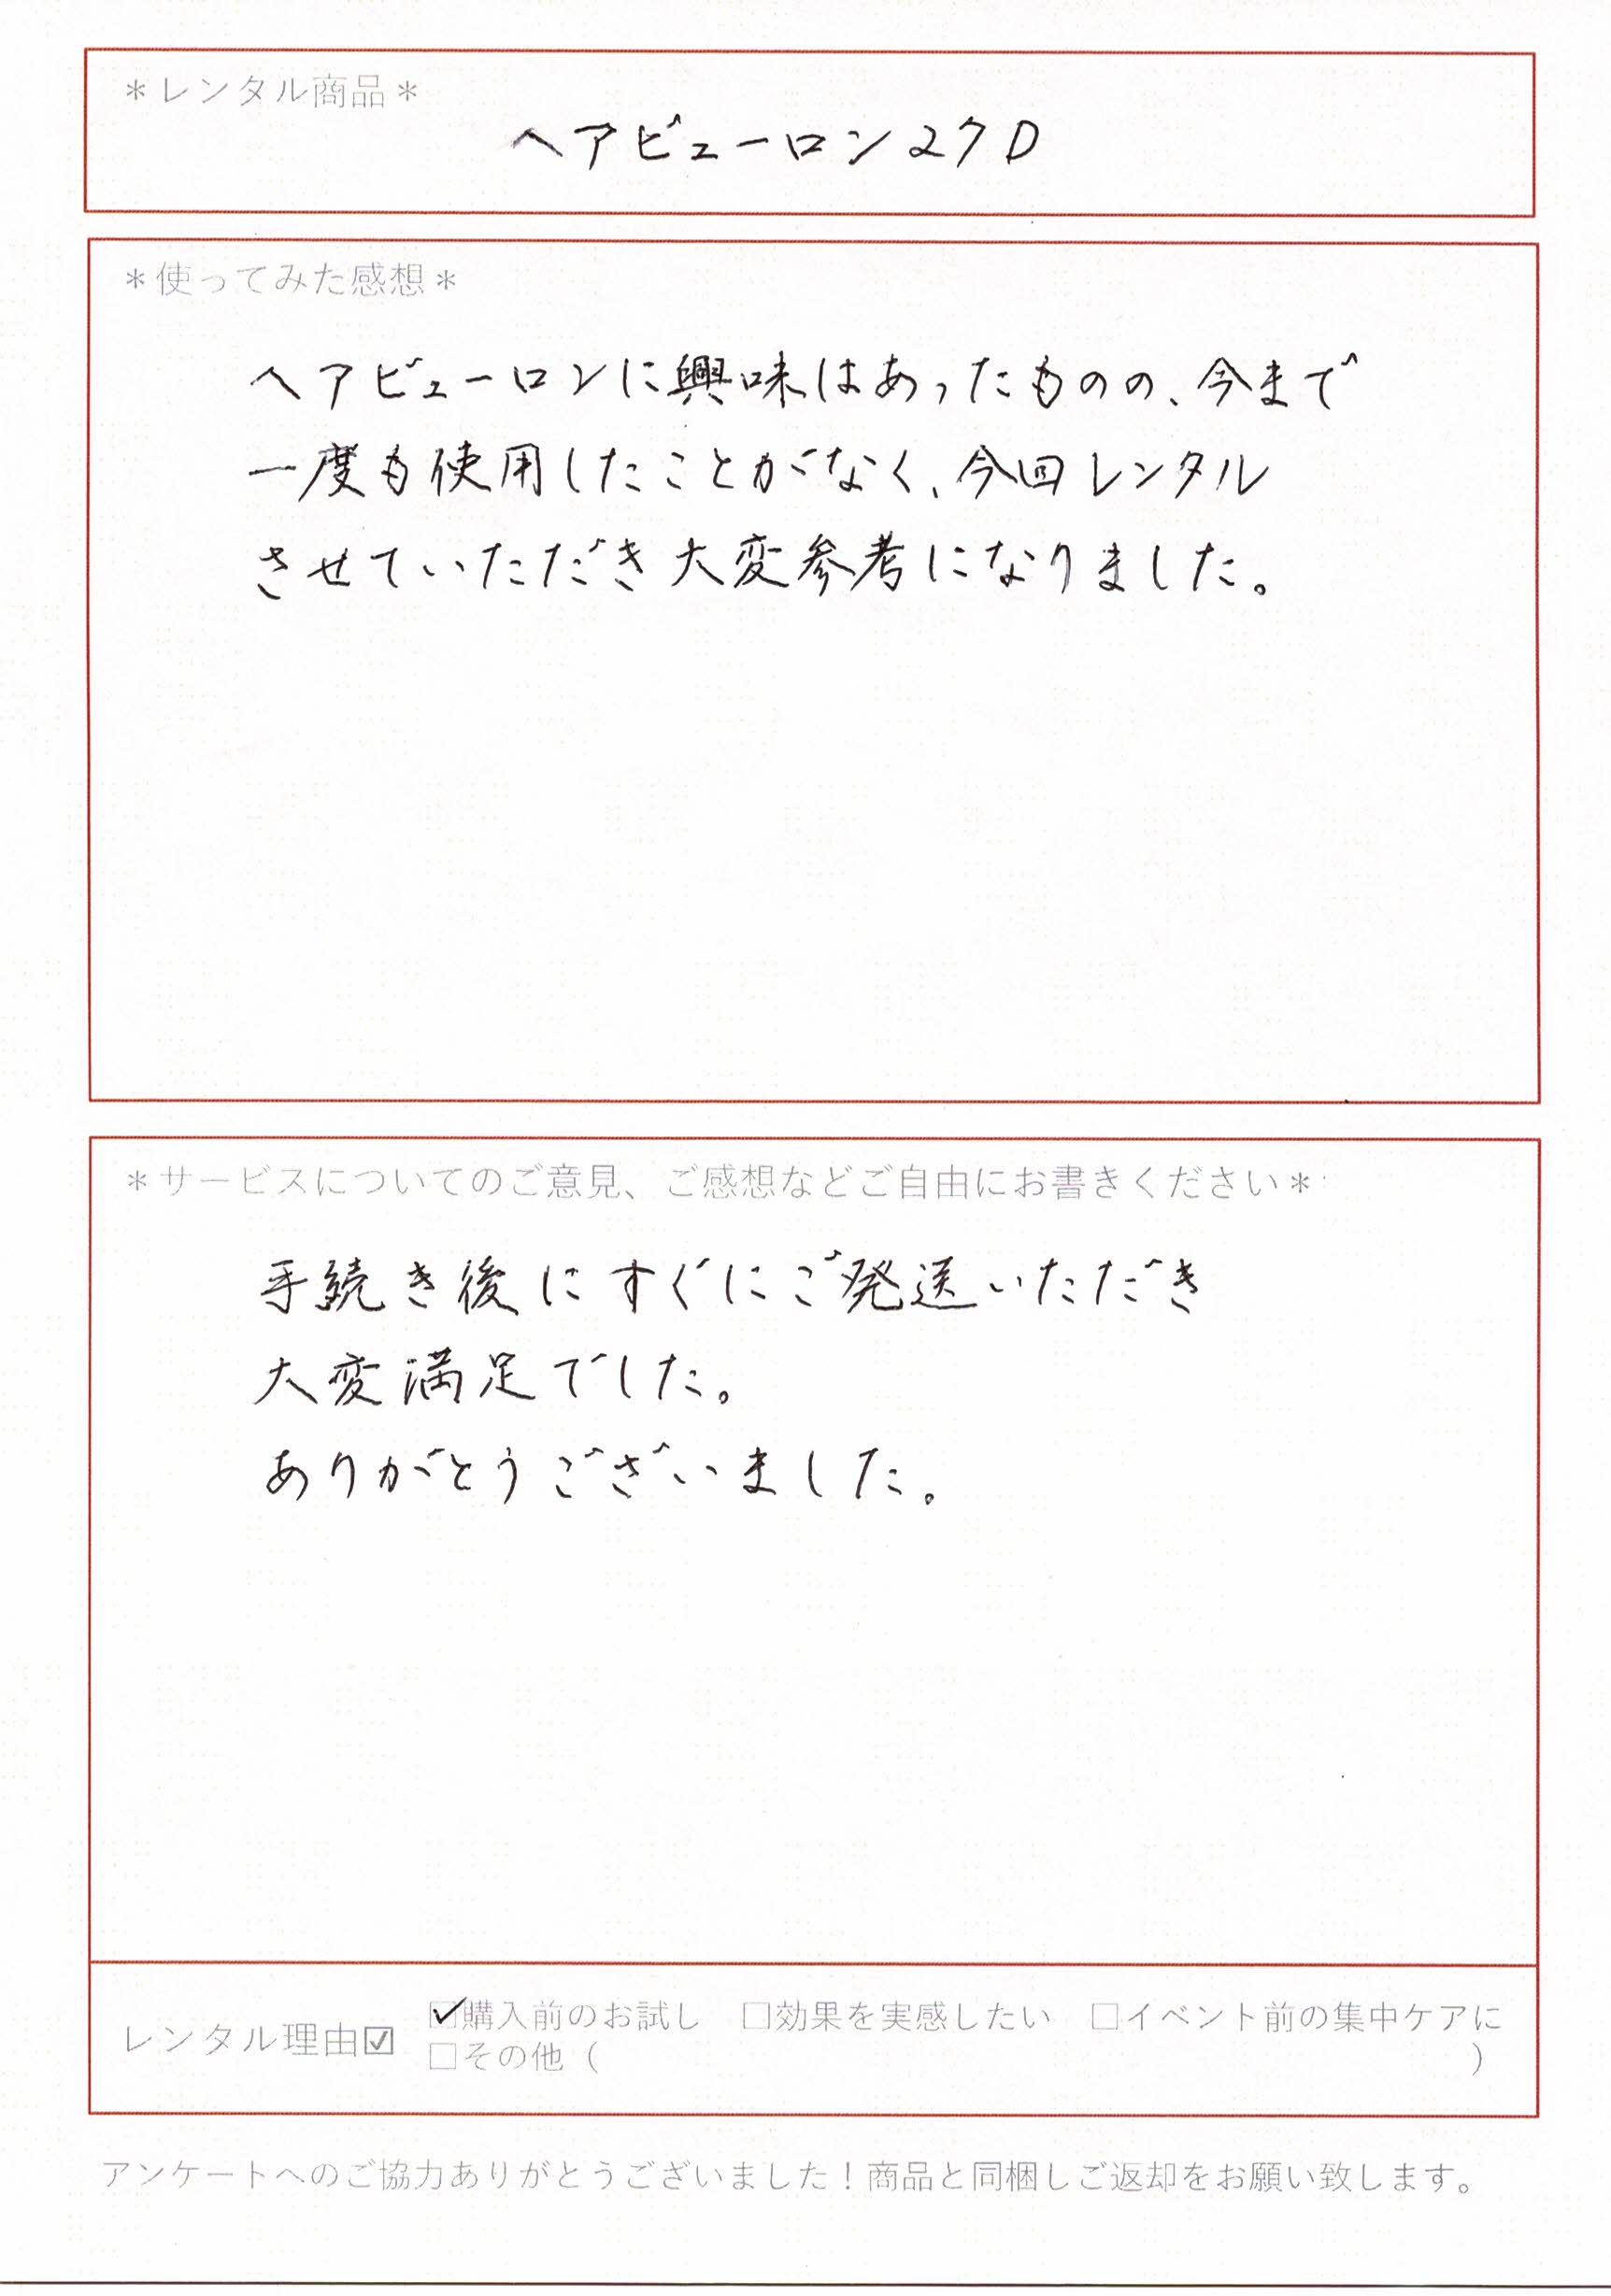 ＊レンタル商品＊
ヘアビューロン27D
＊使ってみた感想＊
ヘアビューロンに興味はあったものの、今まで
一度も使用したことがなく、今回レンタル
させていただき大変参考になりました。
＊サービスについてのご意見、ご感想などご自由にお書きください＊
手続き後にすぐにご発送いただき
大変満足でした。
ありがとうございました。
レンタル理由☑ ☑購入前のお試し □効果を実感したい □イベント前の集中ケアに
□その他（ ）
アンケートへのご協力ありがとうございました！商品と同梱しご返却をお願い致します。